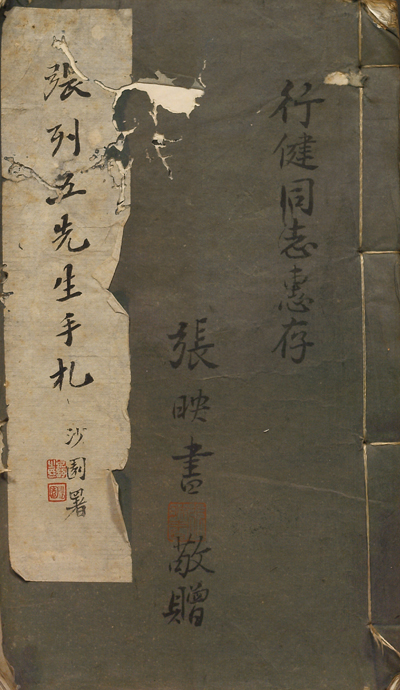 行健同志惠存
張映書
敬贈
張列五先生手札
沙園署